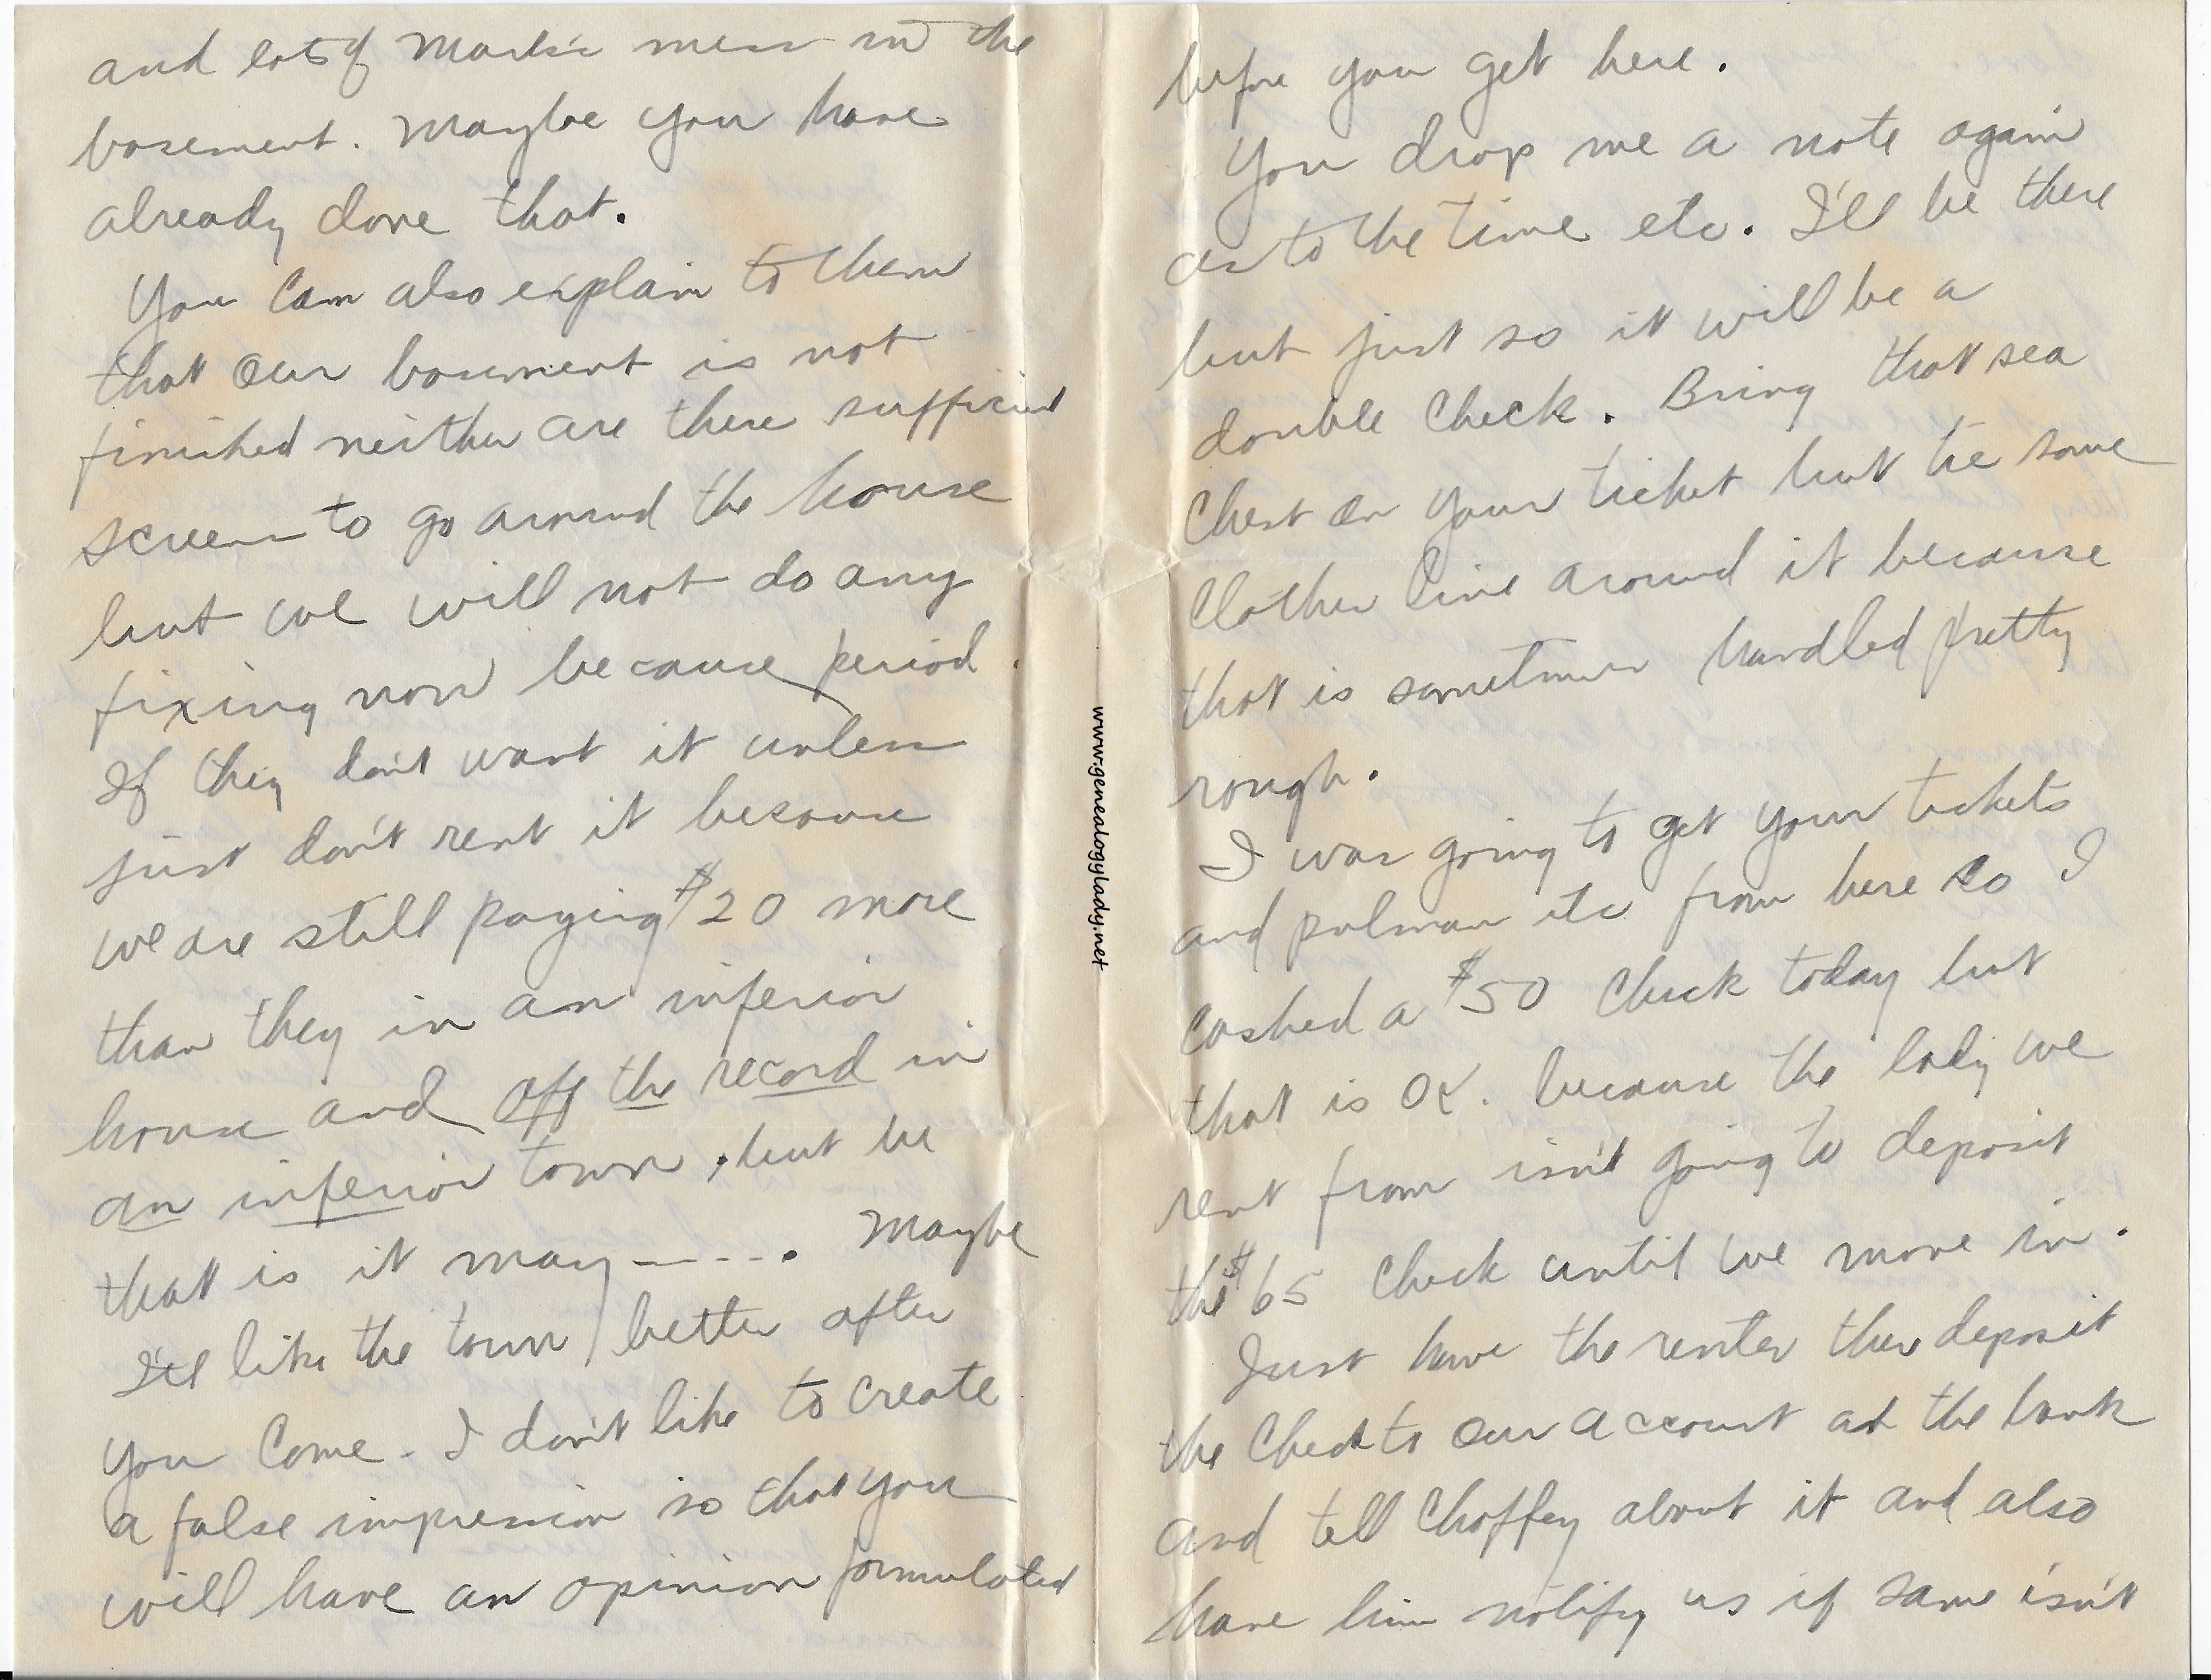 and lots of Mark's mess in the
basement. Maybe you have
already done that.
You can also explain to them
that our basement is not
finished neither are there sufficient
screens to go around the house
but we will not do any
fixing now because period.
If they don't want it unless
just don't rent it because
we are still paying $20 more
than they in an inferior
house and off the record in
an inferior town, but be
that is it may ----. Maybe
I'll like the town better after
you come. I don't like to create
a false impression so that you
will have an opinion formulated
www.genealogylady.net
before you get here.
You drop me a note again
as to the time etc. I'll be there
but just so it will be a
double check. Bring that sea
chest on your ticket but tie some
clothes line around it because
that is sometimes handled pretty
rough.
I was going to get your tickets
and pulman etc from here so I
cashed a $50 check today but
that is OK. because the lady we
rent from isn't going to deposit
the $65 check until we move in.
Just have the renter then deposit
the check to our account at the bank
and tell Choffey about it and also
have him notify us if same isn't